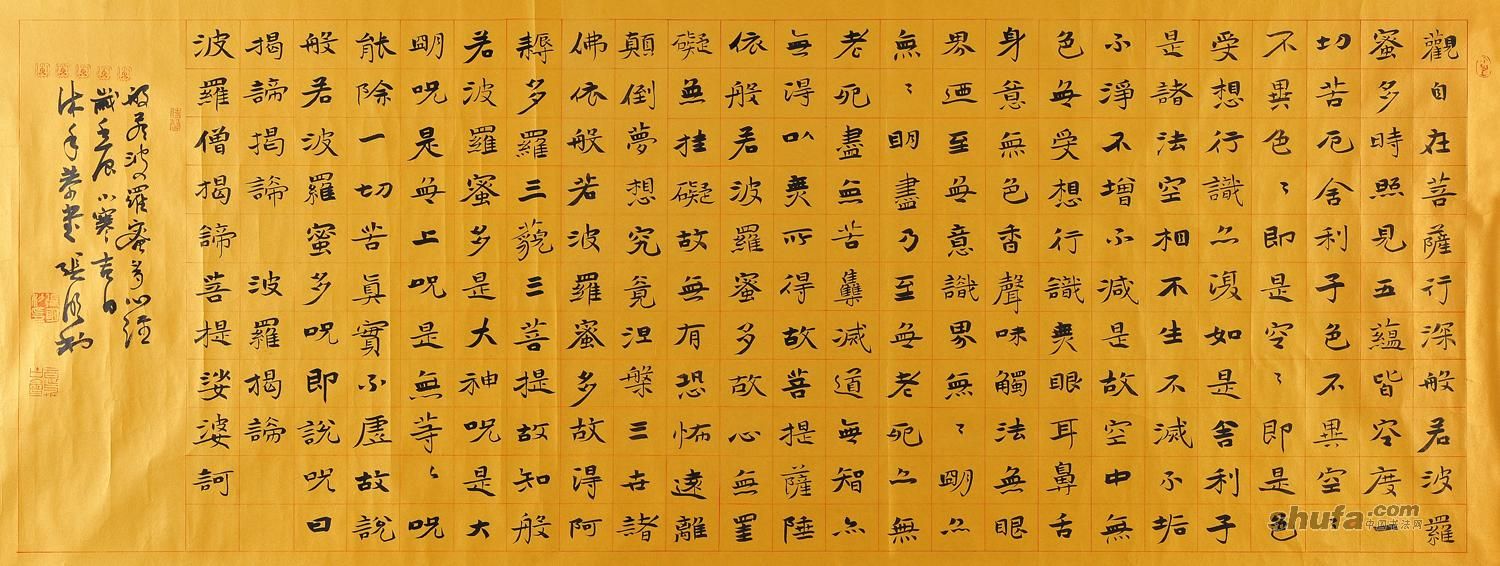 觀自在菩薩行深般若波羅
蜜多時照見五蘊皆空度一
切苦厄舍利子色不異空〻
不異色〻即是空〻即是色
受想行識亦復如是舍利子
是諸法空相不生不滅不垢
不淨不增不減是故空中無
色無受想行識無眼耳鼻舌
身意無色香聲味觸法無眼
界迺至無意識界無〻明亦
無〻明盡乃至無老死亦無
老死盡無苦集滅道無智亦
無得以無所得故菩提薩陲
依般若波羅蜜多故心無罣
礙無挂礙故無有恐怖遠離
顛倒夢想究竟涅槃三世諸
佛依般若波羅蜜多故得阿
耨多羅三藐三菩提故知般
若波羅蜜多是大神咒是大
明咒是無上咒是無等〻咒
能除一切苦真實不虛故說
般若波羅蜜多咒即說咒曰
揭諦揭諦 波羅揭諦
波羅僧揭諦菩提娑婆訶
般若波羅蜜多心經
歲壬辰小寒吉日
沐手恭書 張
shufa.com
中国书法网